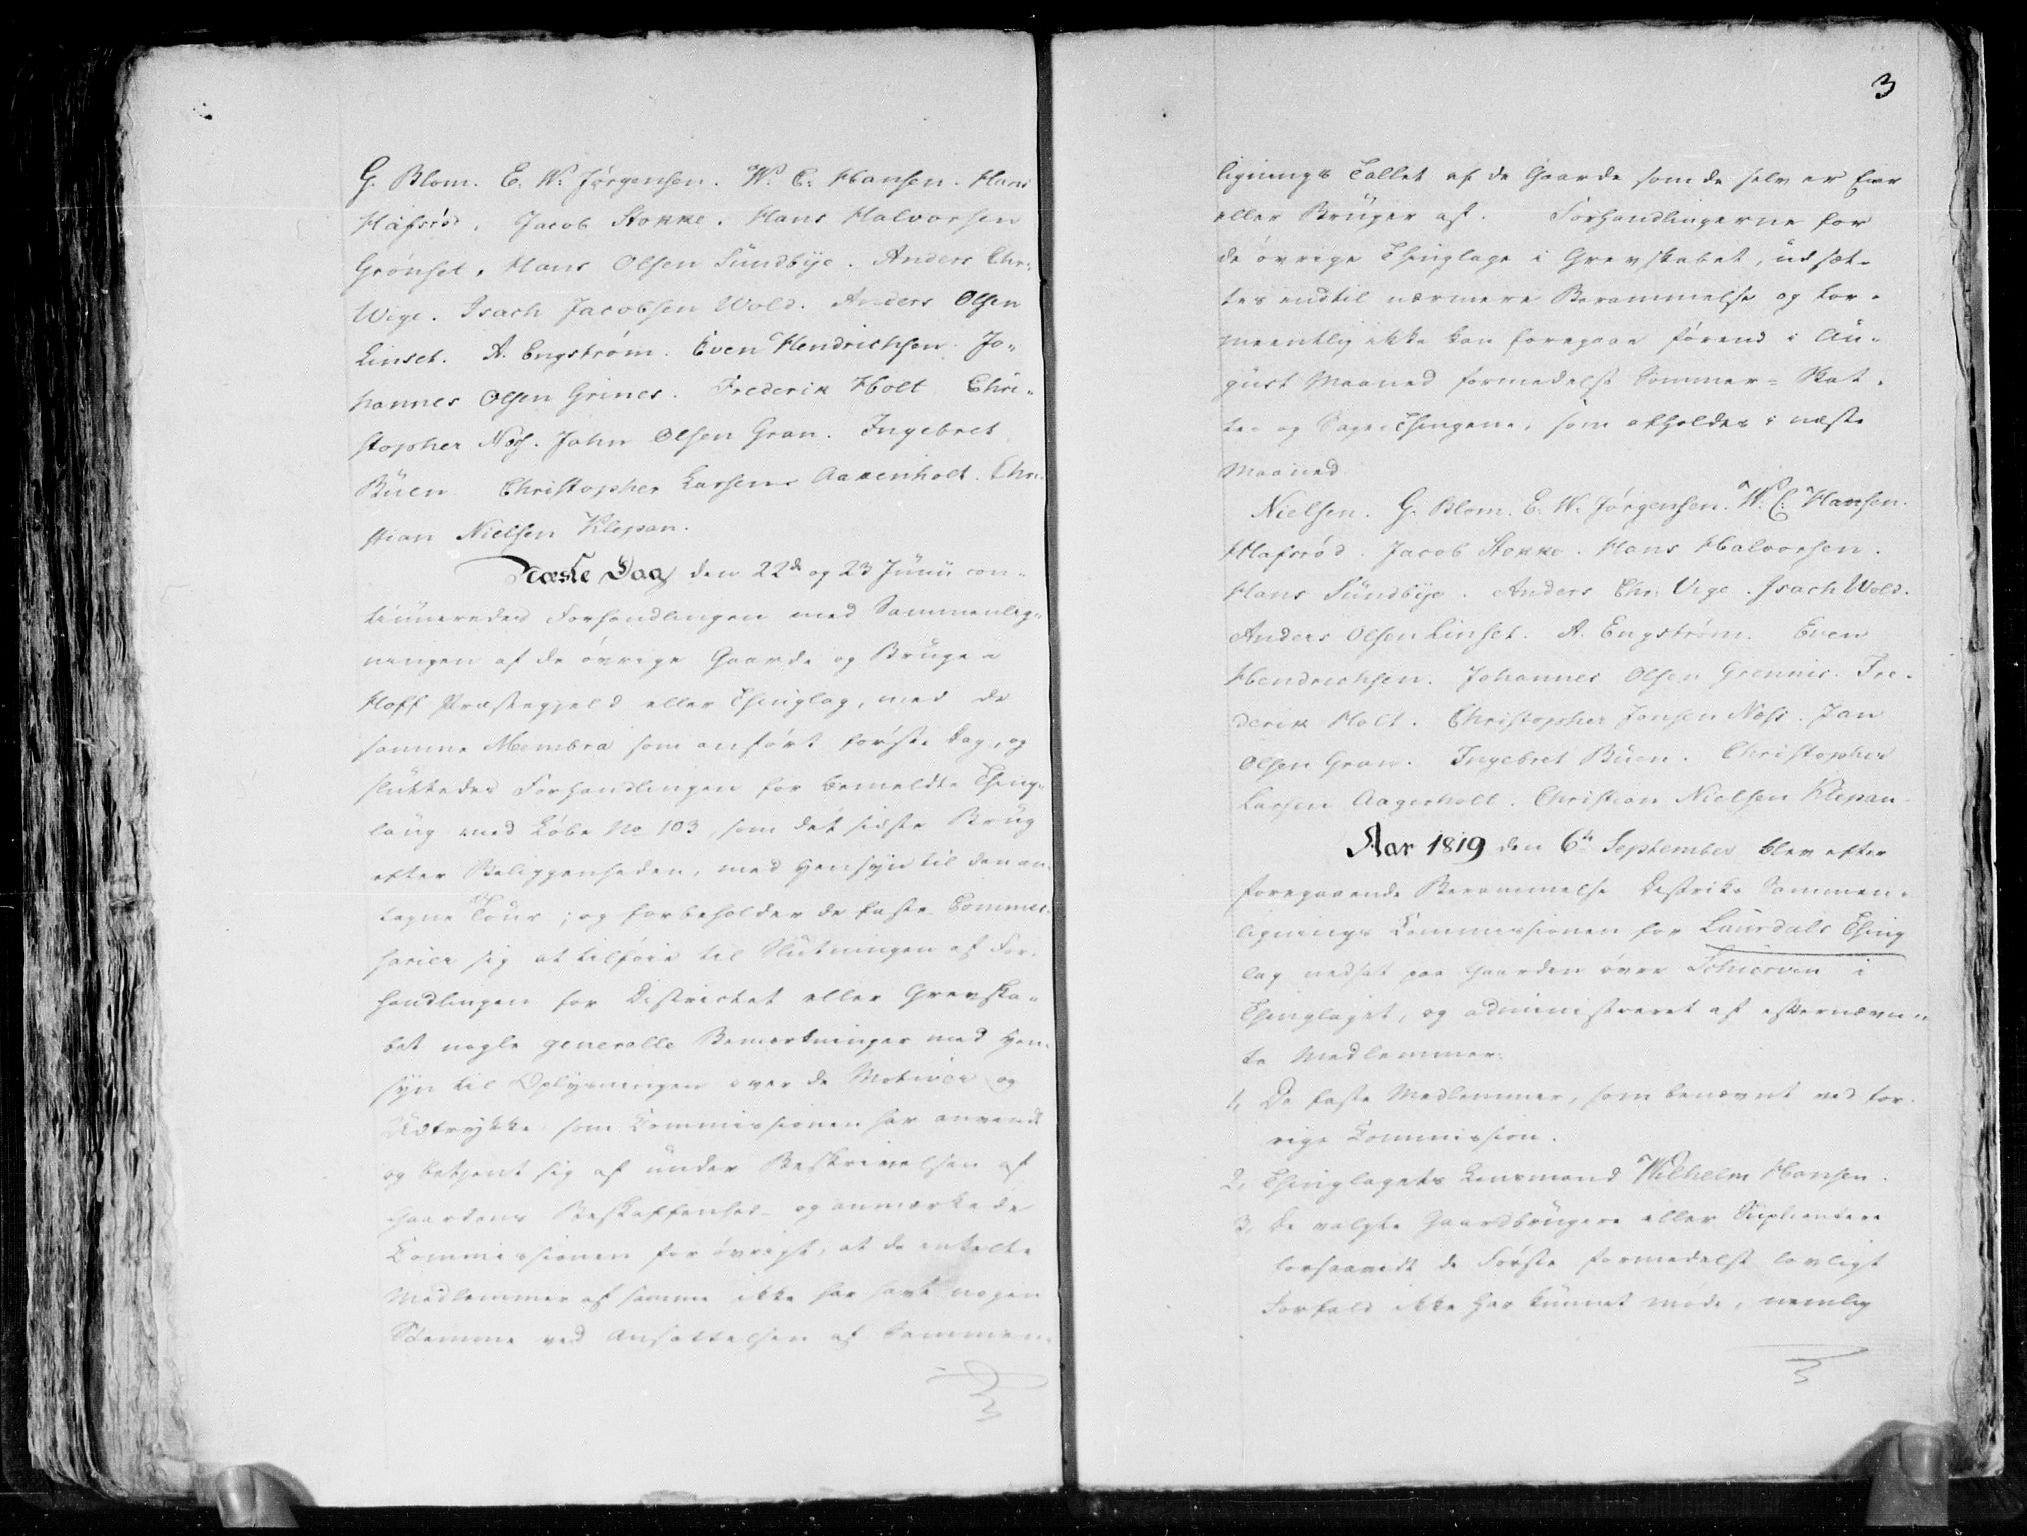 G. Blom. E. W. Jørgensen. W. C. Hansen. Hans
Hafsrød. Jacob Stokke. Hans Halvorsen
Grønset. Hans Olsen Sundbÿe. Anders Chr.
Wige. Isach Jacobsen Wold. Anders Olsen
Linset. A. Engstrøm. Even Hendrichsen. Jo„
hannes Olsen Grines. Frederik Holt Chri„
stopher Næs. John Olsen Gran. Ingebret
Büen. Christopher Larsen Aakenholt. Chri„
stian Nielsen Klepan.
Næste Dag den 22de og 23 Junii con„
tinueredes Forhandlingen med Sammenlig„
ningen af de øvrige Gaarde og Brüge i
Hoff Præstegjeld eller Thinglag, med de
samme Membra som anført første Dag, og
sluttedes Forhandlingen for bemeldte Thing„
laug med Løbe No 103, som det sidste Brüg
efter Beliggenheden, med Hensyn til den an„
tagne Tour; og forbeholder de faste Commis„
sarier sig at tilføie til Slutningen af For„
handlingen for Districtet eller Grevska„
bet nogle generelle Bemærkninger med Hen„
syn til Oplysningen over de Motiver og
Udtrykke som Commissionen har anvendt
og betjent sig af ünder Beskrivelsen af
Gaardens Beskaffenhed og anmærkede
Commissionen for øvrigt, at de enkelte
Medlemmer af samme ikke har havt nogen
Stemme ved Ansættelsen af Sammen„
3
lignings Tallet af de Gaarde som de selv er Eier
eller Brüger af. Forhandlingerne for
de øvrige Thinglage i Grevskabet, udsæt„
tes indtil nærmere Berammelse og for„
meentlig ikke kan foregaae førend i Aü„
güst Maaned formedelst Sommer= Skat„
te- og Sage-Thingene, som afholdes i næste
Maaned.
Nielsen. G. Blom. E. W. Jørgensen. W. C. Hansen.
Hafsrød. Jacob Stokke. Hans Halvorsen.
Hans Sündbÿe. Anders Chr. Vige. Isach Wold.
Anders Olsen Linset. A. Engstrøm. Even
Hendrichsen. Johannes Olsen Grennis. Fre„
derik Holt. Christopher Jensen Næss. Jan
Olsen Gran. Ingebret Büen. Christopher
Larsen Aagerholt. Christian Nielsen Klepan
Aar 1819 den 6te September blev efter
foregaaende Berammelse Distrikts Sammen„
lignings Commissionen for Laurdals Thing
lag nedsat paa Gaarden øvre Schierven i
Thinglaget, og administreret af efternævn„
te Medlemmer:
1, De faste Medlemmer, som benævnt ved for„
rige Commission.
2, Thinglagets Lensmand Wilhelm Hansen.
3, De valgte Gaardbrügere eller Süpleantere
forsaavidt de Første formedelst lovligt
Forfald ikke har künnet møde, nemlig